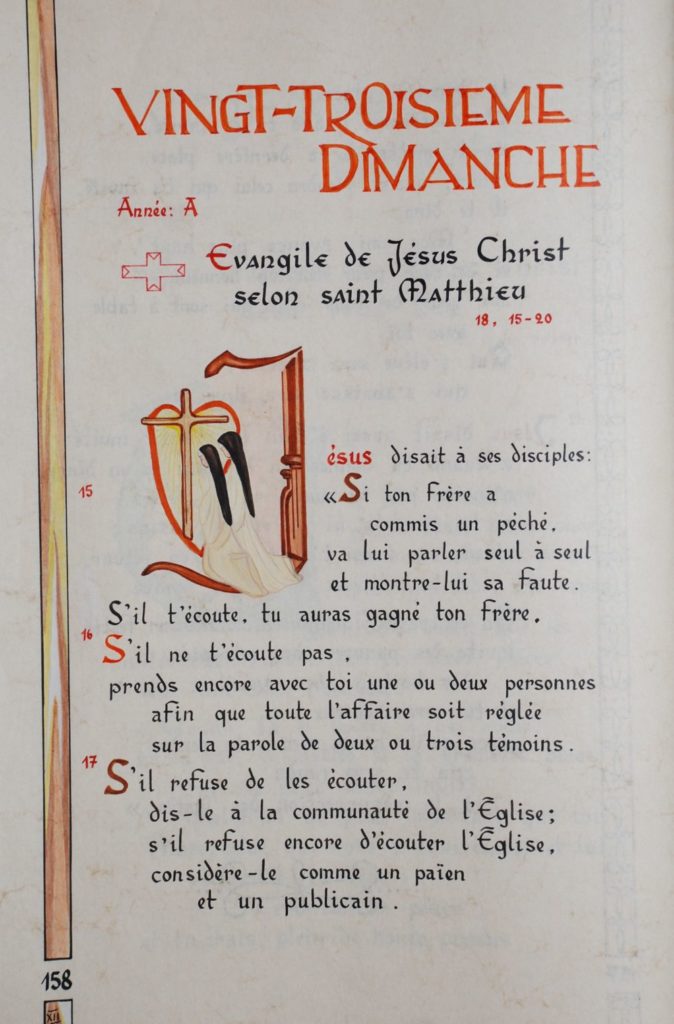 VINGT-TROISIEME
DIMANCHE
Année: A
Evangile de Jésus Christ
selon saint Matthieu
18, 15-20
Jésus disait à ses disciples:
15 «Si ton frère a
commis un péché,
va lui parler seul à seul
et montre-lui sa faute.
S'il t'écoute, tu auras gagné ton frère.
16 S'il ne t'écoute pas,
prends encore avec toi une ou deux personnes
afin que toute l'affaire soit réglée
sur la parole de deux ou trois témoins.
17 S'il refuse de les écouter,
dis-le à la communauté de l'Église;
s'il refuse encore d'écouter l'Église,
considère-le comme un païen
et un publicain.
158
XII